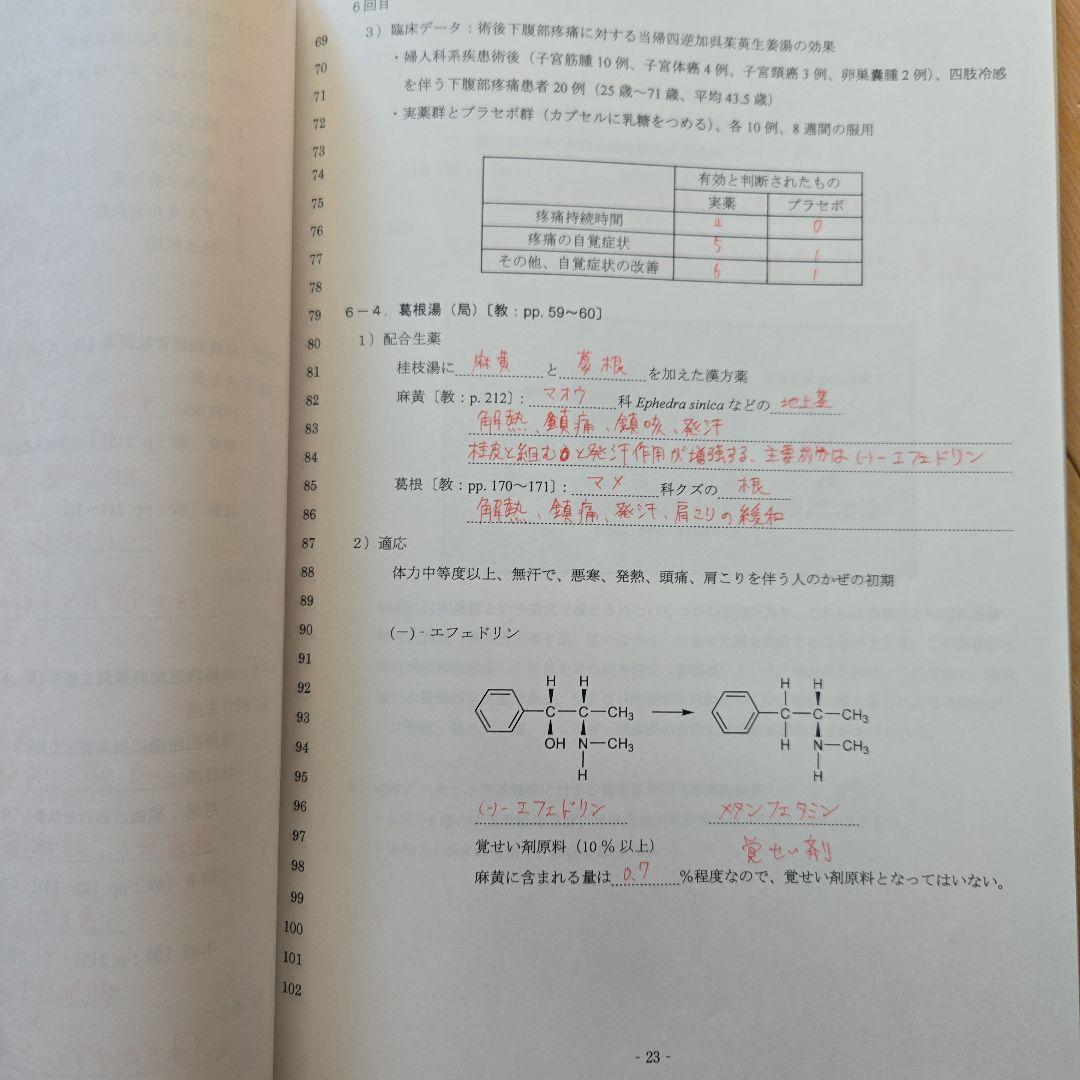 6回目
69
3）臨床データ：術後下腹部疼痛に対する当帰四逆加呉茱萸生姜湯の効果
70
・婦人科系疾患術後（子宮筋腫10例、子宮体癌4例、子宮頸癌3例、卵巣嚢腫2例）、四肢冷感
71
を伴う下腹部疼痛患者20例（25歳～71歳、平均43.5歳）
72
・実薬群とプラセボ群（カプセルに乳糖をつめる）、各10例、8週間の服用
73
74
有効と判断されたもの
75
実薬 プラセボ
76
疼痛持続時間 4 0
疼痛の自覚症状 5 1
77
その他、自覚症状の改善 6 1
78
79
6－4．葛根湯（局）〔教：pp. 59～60〕
80
1）配合生薬
81
桂枝湯に 麻黄 と 葛根 を加えた漢方薬
82
麻黄〔教：p. 212〕： マオウ 科 Ephedra sinica などの 地上茎
83
解熱、鎮痛、鎮咳、発汗
84
桂皮と組むと発汗作用が増強する、主要成分は(-)-エフェドリン
85
葛根〔教：pp. 170～171〕： マメ 科クズの 根
86
解熱、鎮痛、発汗、肩こりの緩和
87
2）適応
88
体力中等度以上、無汗で、悪寒、発熱、頭痛、肩こりを伴う人のかぜの初期
89
90
(－)‐エフェドリン
91
92
H H H H
93
C C CH3 C C CH3
94
OH N CH3 H N CH3
95
H H
96
(-)-エフェドリン メタンフェタミン
97
覚せい剤原料（10 % 以上） 覚せい剤
98
麻黄に含まれる量は 0.7 %程度なので、覚せい剤原料となってはいない。
99
100
101
102
- 23 -